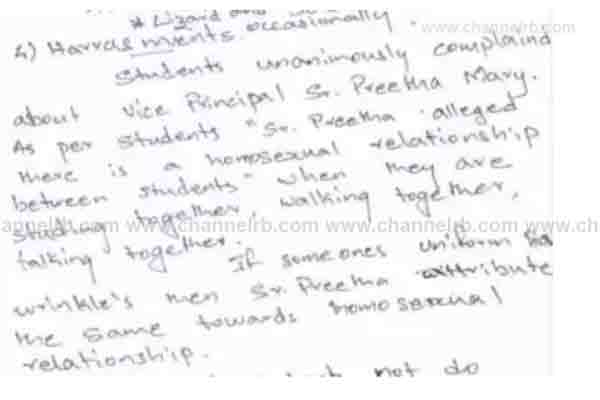 www.channelrb.com
* Lizard and
4) Harras ments occasionally.
Students unanimously complaind
about Vice Principal Sr. Preetha Mary.
As per students "Sr. Preetha alleged
there is a homosexual relationship
between students" when they are
studing together, walking together,
annelrb.com www.channelrb.com www.channelrb.com www.ch
talking together.
If someones uniform ha
wrinkle's then Sr. Preetha attribute
the same towards homosexual
relationship.
not do